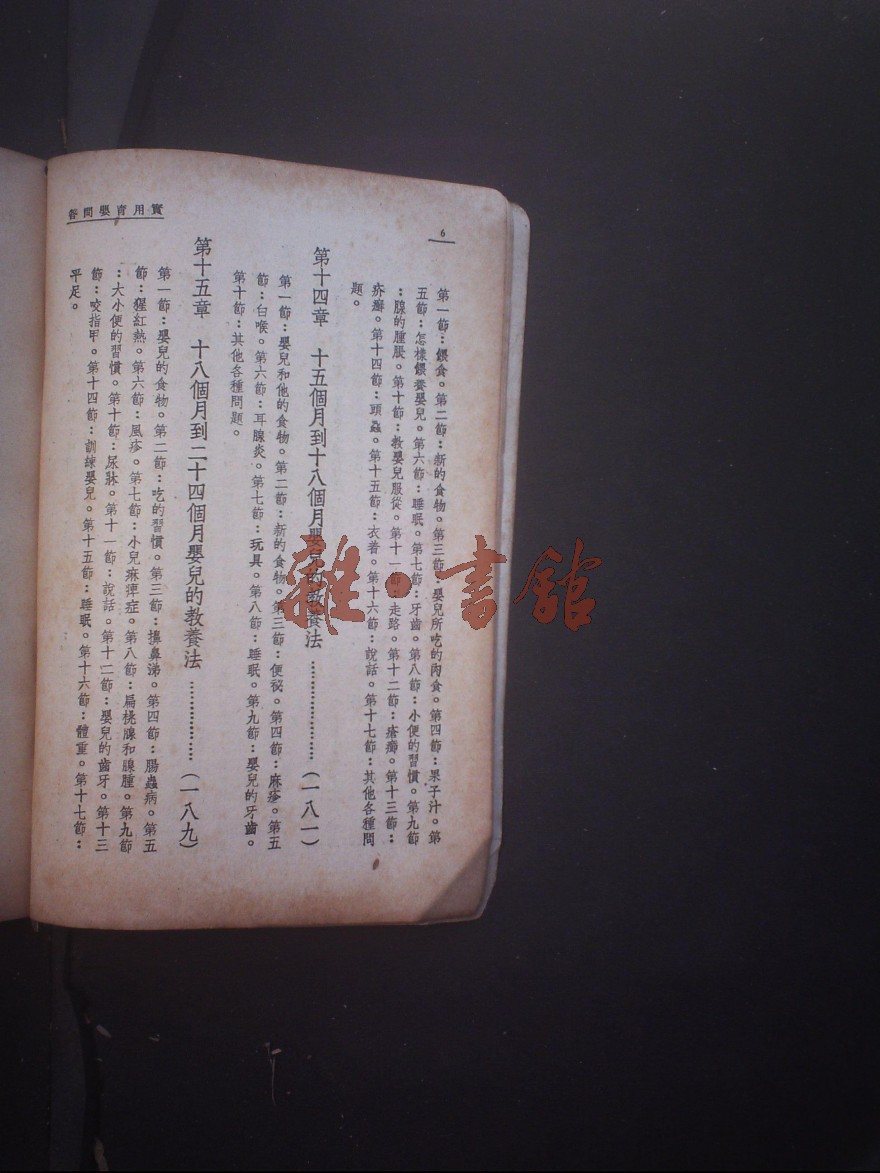 6
實用育嬰問答
第一節：餵食。第二節：新的食物。第三節：嬰兒所吃的肉食。第四節：果子汁。第
五節：怎樣餵養嬰兒。第六節：睡眠。第七節：牙齒。第八節：小便的習慣。第九節
：腺的腫脹。第十節：教嬰兒服從。第十一節：走路。第十二節：瘡癤。第十三節：
疥癬。第十四節：頭蟲。第十五節：衣着。第十六節：說話。第十七節：其他各種問
題。
第十四章　十五個月到十八個月嬰兒的教養法…………………（一八一）
第一節：嬰兒和他的食物。第二節：新的食物。第三節：便秘。第四節：麻疹。第五
節：白喉。第六節：耳腺炎。第七節：玩具。第八節：睡眠。第九節：嬰兒的牙齒。
第十節：其他各種問題。
第十五章　十八個月到二十四個月嬰兒的教養法………………（一八九）
第一節：嬰兒的食物。第二節：吃的習慣。第三節：擤鼻涕。第四節：腸蟲病。第五
節：猩紅熱。第六節：風疹。第七節：小兒麻痺症。第八節：扁桃腺和腺腫。第九節
：大小便的習慣。第十節：尿牀。第十一節：說話。第十二節：嬰兒的齒牙。第十三
節：咬指甲。第十四節：訓練嬰兒。第十五節：睡眠。第十六節：體重。第十七節：
平足。
雜·書館